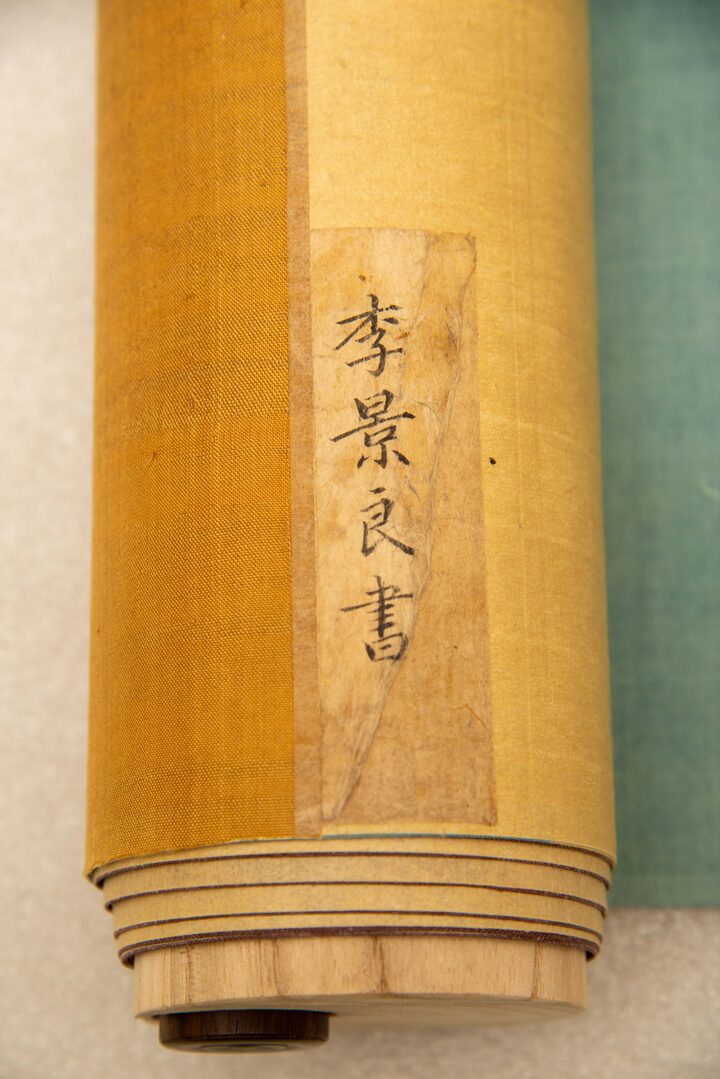 李景良書